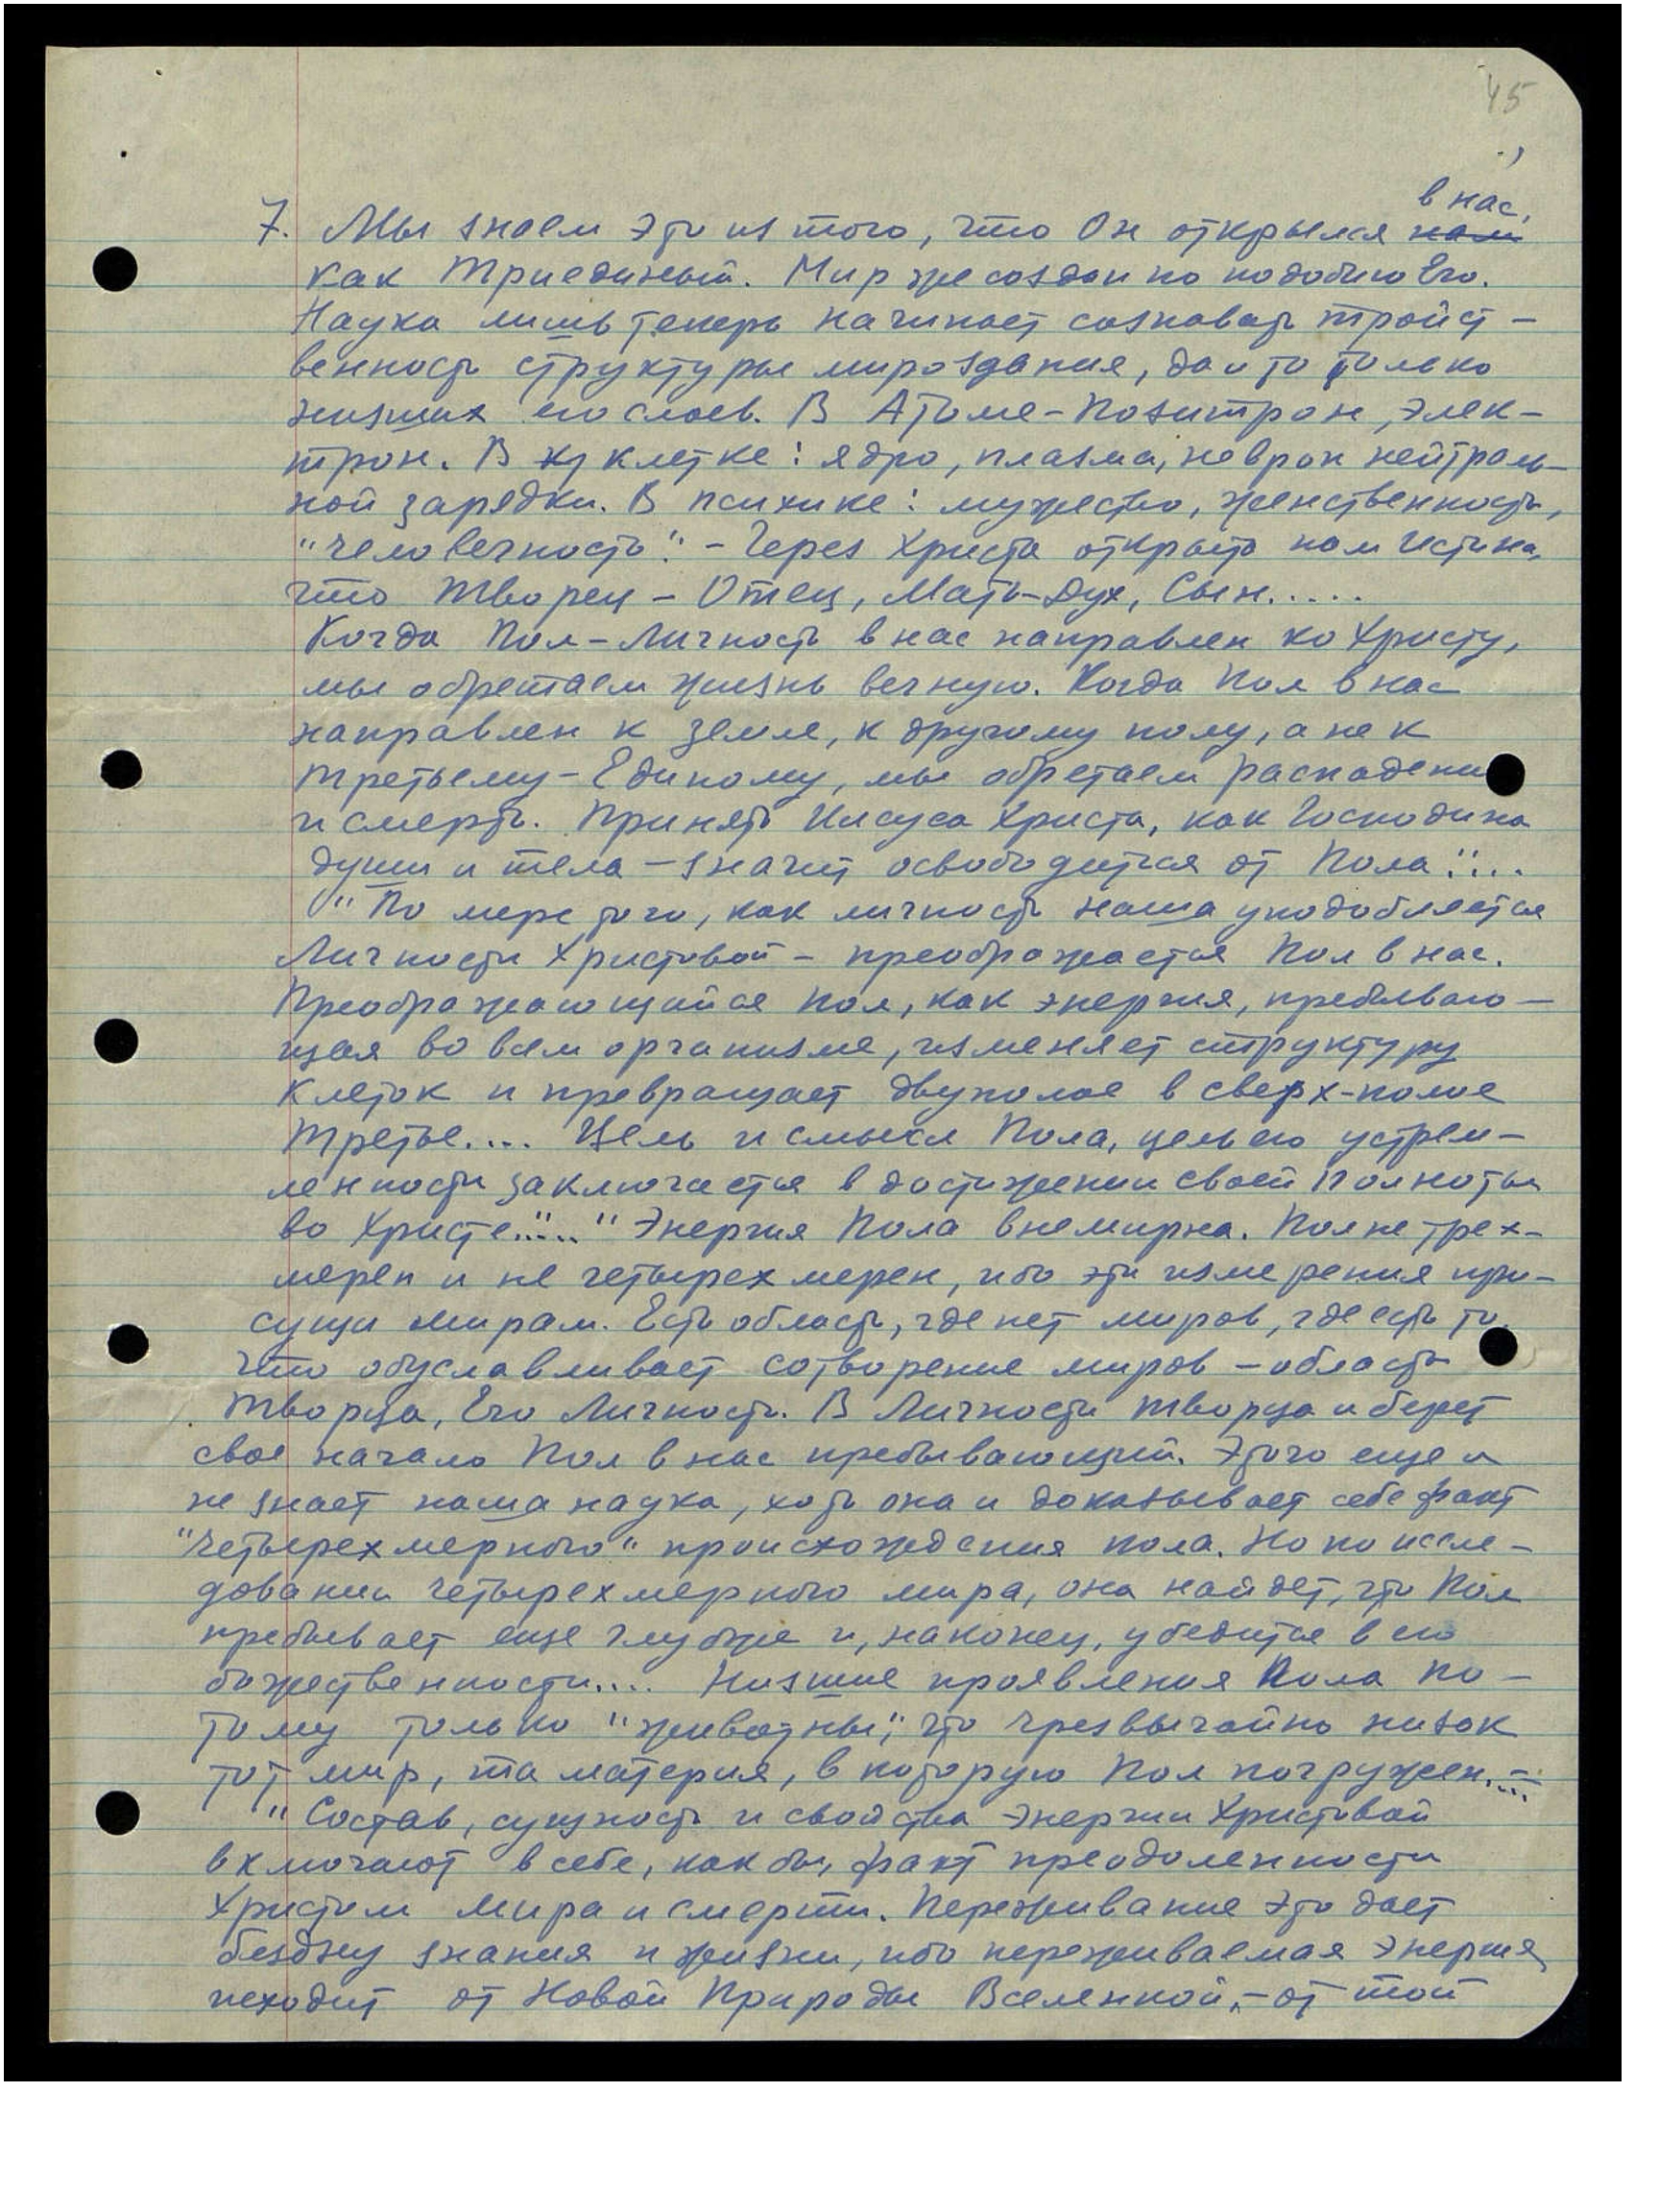 45
в нас,
7. Мы знаем это из того, что Он открылся нам
как Триединый. Мир же создан по подобию Его.
Наука лишь теперь начинает сознавать тройст-
венность структуры мироздания, да и то только
низших его слоев. В Атоме - позитрон, элек-
трон. В клетке: ядро, плазма, неврон нейтраль-
ной зарядки. В психике: мужество, женственность,
"человечность". - Через Христа открыта нам Истина,
что Творец - Отец, Мать-Дух, Сын.....
Когда Пол-Личность в нас направлен ко Христу,
мы обретаем жизнь вечную. Когда Пол в нас
направлен к земле, к другому полу, а не к
третьему - Единому, мы обретаем распадение
и смерть. Принять Иисуса Христа, как Господина
души и тела - значит освободиться от Пола"...
"По мере того, как личность наша уподобляется
Личности Христовой - преображается Пол в нас.
Преображающийся Пол, как энергия, пребываю-
щая во всем организме, изменяет структуру
клеток и превращает двуполое в сверх-полое
Третье.... Цель и смысл Пола, цель его устрем-
ленности заключается в достижении своей Полноты
во Христе"... "Энергия Пола внемирна. Пол не трех-
мерен и не четырехмерен, ибо эти измерения при-
сущи мирам. Есть область, где нет миров, где есть то,
что обуславливает сотворение миров - область
Творца, Его Личность. В Личности Творца и берет
свое начало Пол в нас пребывающий. Этого еще и
не знает наша наука, хоть она и доказывает себе факт
"четырехмерного" происхождения пола. Но по иссле-
довании четырехмерного мира, она найдет, что Пол
пребывает еще глубже и, наконец, убедится в его
божественности.... Низшие проявления Пола по-
тому только "животны", что чрезвычайно низок
тот мир, та материя, в которую Пол погружен."...
"Состав, сущность и свойства Энергии Христовой
включают в себе, как бы, факт преодоленности
Христом мира и смерти. Переживание это дает
бездну знания и жизни, ибо переживаемая энергия
исходит от Новой Природы Вселенной, - от той